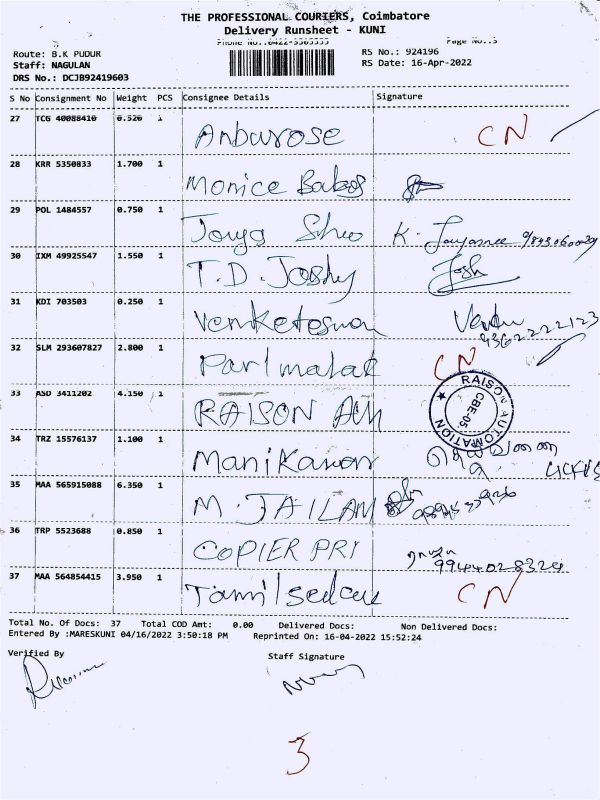 THE PROFESSIONAL COURIERS, Coimbatore
Delivery Runsheet - KUNI
Phone No.:0422-3363333 Page No.:3
Route: B.K PUDUR RS No.: 924196
Staff: NAGULAN RS Date: 16-Apr-2022
DRS No.: DCJB92419603
S No Consignment No Weight PCS Consignee Details Signature
27 TCG 40088410 0.520 1 Anburose CN
28 KRR 5350833 1.700 1 Monice
29 POL 1484557 0.750 1 Jouya K. Jayasree
30 IXM 49925547 1.550 1 T.D. Joshy Josh
31 KDI 703503 0.250 1 Venketeswan 9362222123
32 SLM 293607827 2.800 1 Parimalak CN
33 ASD 3411202 4.150 1 RAISON RAISON AUTOMATION CBE-05
34 TRZ 15576137 1.100 1 Manikavan
35 MAA 565915088 6.350 1 M. JAILAM
36 TRP 5523688 0.850 1 COPIER PRI 9944028324
37 MAA 564854415 3.950 1 CN
Total No. Of Docs: 37 Total COD Amt: 0.00 Delivered Docs: Non Delivered Docs:
Entered By :MARESKUNI 04/16/2022 3:50:18 PM Reprinted On: 16-04-2022 15:52:24
Verified By Staff Signature
3